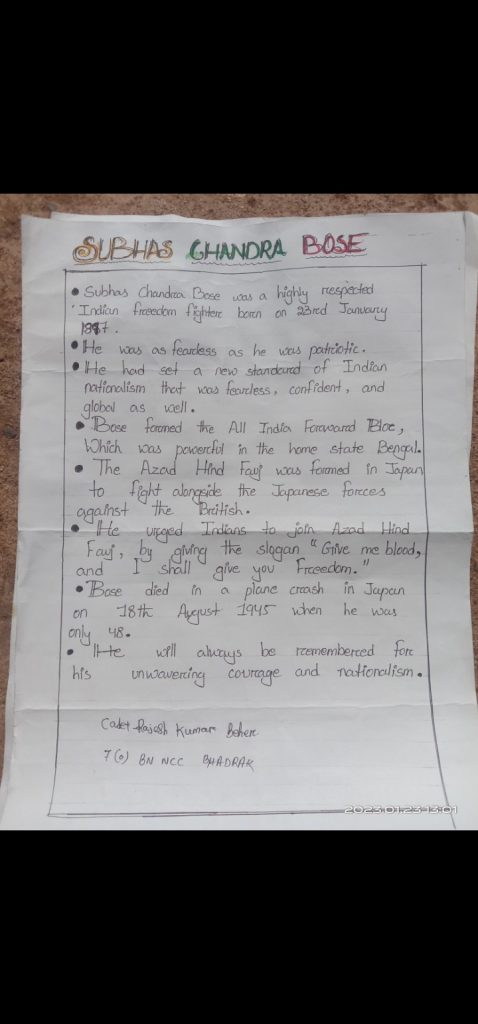 SUBHAS CHANDRA BOSE
• Subhas Chandra Bose was a highly respected
Indian freedom fighter born on 23rd January
1897.
• He was as fearless as he was patriotic.
• He had set a new standard of Indian
nationalism that was fearless, confident, and
global as well.
• Bose formed the All India Forward Bloc,
Which was powerful in the home state Bengal.
• The Azad Hind Fauj was formed in Japan
to fight alongside the Japanese forces
against the British.
• He urged Indians to join Azad Hind
Fauj, by giving the slogan "Give me blood,
and I shall give you Freedom."
• Bose died in a plane crash in Japan
on 18th August 1945 when he was
only 48.
• He will always be remembered for
his unwavering courage and nationalism.
Cadet Rajesh Kumar Behera
7(O) BN NCC BHADRAK
2023.01.23 13:01